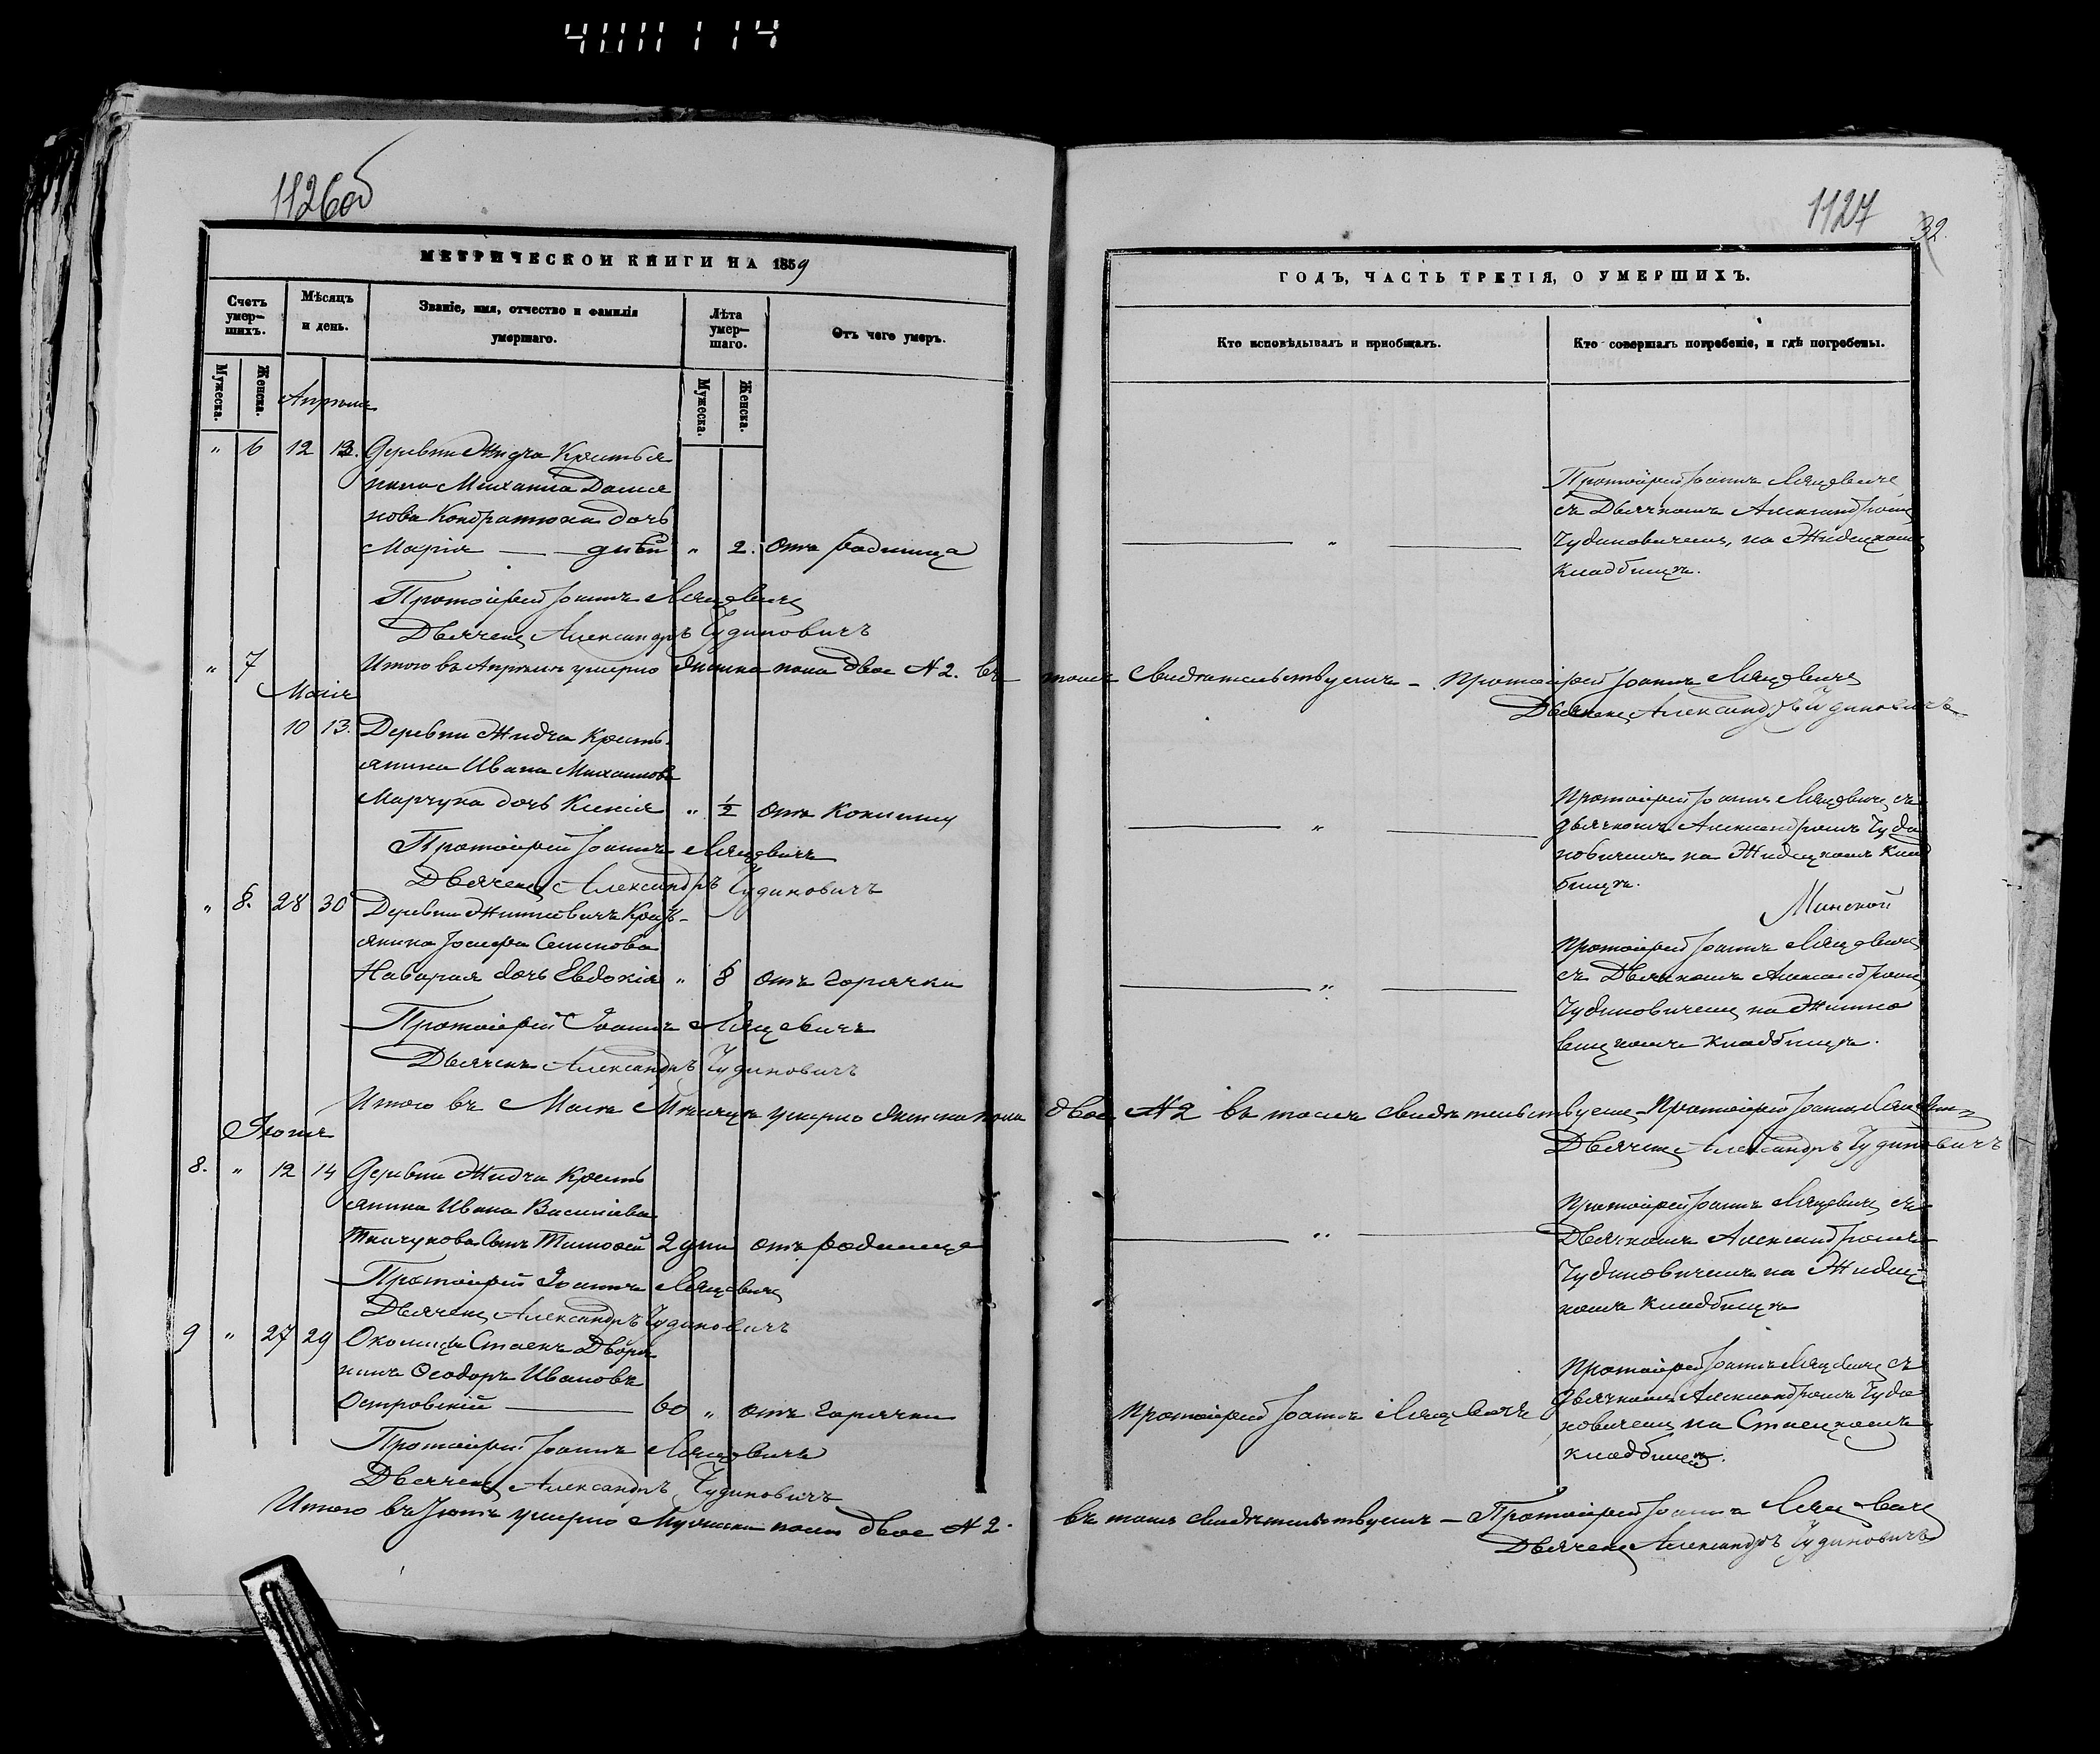 1126об
МЕТРИЧЕСКОЙ КНИГИ НА 1859
Счетъ умер-шихъ.
Мѣсяцъ и день.
Званіе, имя, отчество и фамилія умершаго.
Лѣта умер-шаго.
Отъ чего умеръ.
Мужеска.
Женска.
Мужеска.
Женска.
Апрѣля
" 6 12 13. Деревни Жидча Крестья
нина Михаила Дамія
нова Кондратюка дочь
Марія — дней " 2. отъ родимца
Протоіерей Іоаннъ Лящевичъ
Дьячекъ Александръ Чудиновичъ
" 7 Итого въ Апрѣлѣ умерло женска пола двое № 2. въ
Маія
10 13. Деревни Жидча Кресть-
янина Ивана Михаилова
Марчука дочь Ксенія " ½ отъ
Протоіерей Іоаннъ Лящевичъ
Дьячекъ Александръ Чудиновичъ
" 8. 28 30 Деревни Крест-
янина Іосифа Семенова
дочь Евдокія " 8 отъ горячки
Протоіерей Іоаннъ Лящевичъ
Дьячекъ Александръ Чудиновичъ
Итого въ Маѣ Мѣсяцѣ умерло женска пола
Іюня
8. " 12 14 Деревни Жидча Кресть
янина Ивана Василіева
сынъ Тимофей 2 дни отъ родимца
Протоіерей Іоаннъ Лящевичъ
Дьячекъ Александръ Чудиновичъ
9 " 27 29 Околицы Стаекъ Дворя
нинъ Ѳеодоръ Ивановъ
Островскій — 60 " отъ горячки
Протоіерей Іоаннъ Лящевичъ
Дьячекъ Александръ Чудиновичъ
Итого въ Іюнѣ умерло Мужеска пола двое № 2.
1127
32.
ГОДЪ, ЧАСТЬ ТРЕТІЯ, О УМЕРШИХЪ.
Кто исповѣдывалъ и пріобщалъ.
Кто совершалъ погребеніе, и гдѣ погребены.
Протоіерей Іоаннъ Лящевичъ
съ Дьячкомъ Александромъ
Чудиновичемъ, на Жидецкомъ
кладбищѣ.
томъ свидѣтельствуемъ – Протоіерей Іоаннъ Лящевичъ
Дьячекъ Александръ Чудиновичъ
Протоіерей Іоаннъ Лящевичъ съ
дьячкомъ Александромъ Чуди
новичемъ на Жидецкомъ клад
бищѣ.
Минской
Протоіерей Іоаннъ Лящевичъ
съ Дьячкомъ Александромъ
Чудиновичемъ на
кладбищѣ.
двое № 2 въ томъ свидѣтельствуемъ Протоіерей Іоаннъ Лящевичъ
Дьячекъ Александръ Чудиновичъ
Протоіерей Іоаннъ Лящевичъ съ
Дьячкомъ Александромъ
Чудиновичемъ на Жидец-
комъ кладбищѣ
Протоіерей Іоаннъ Лящевичъ
Протоіерей Іоаннъ Лящевичъ съ
дьячкомъ Александромъ Чуди
новичемъ на Стаецкомъ
кладбищѣ.
въ томъ свидѣтельствуемъ – Протоіерей Іоаннъ Лящевичъ
Дьячекъ Александръ Чудиновичъ